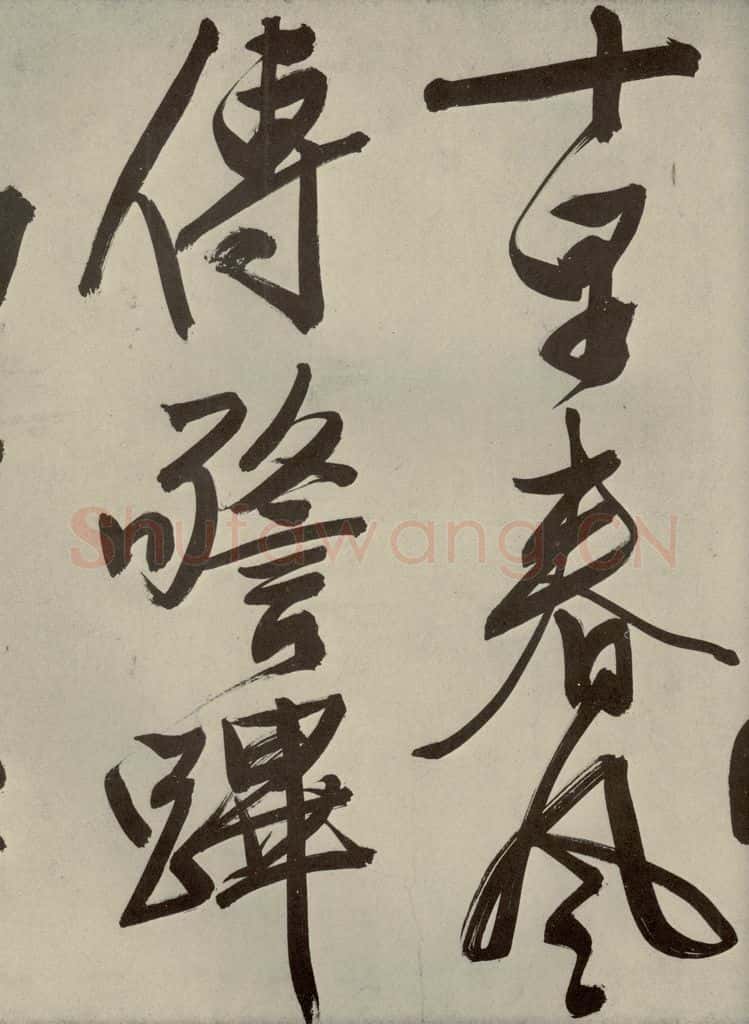 十里春風
傳警蹕
Shufawang.CN